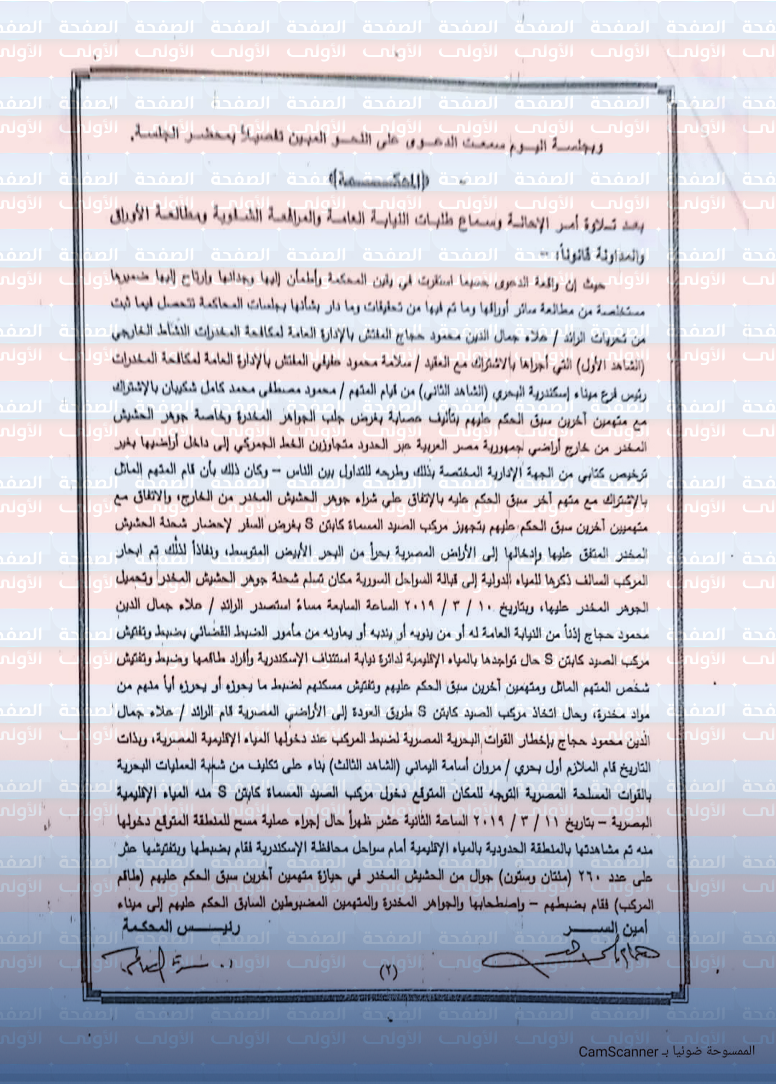 وبجلسة اليوم سمعت الدعوى على النحو المبين تفصيلاً بمحضر الجلسة.
((المحكمة))
بعد تلاوة أمر الإحالة وسماع طلبات النيابة العامة والمرافعة الشفوية ومطالعة الأوراق
والمداولة قانوناً: –
حيث إن واقعة الدعوى حسبما استقرت في يقين المحكمة واطمأن إليها وجدانها وارتاح إليها ضميرها
مستخلصة من مطالعة سائر أوراقها وما تم فيها من تحقيقات وما دار بشأنها بجلسات المحاكمة تتحصل فيما ثبت
من تحريات الرائد / علاء جمال الدين محمود حجاج المفتش بالإدارة العامة لمكافحة المخدرات النشاط الخارجي
(الشاهد الأول) التي أجراها بالاشتراك مع العقيد / سلامة محمود حفيفي المفتش بالإدارة العامة لمكافحة المخدرات
رئيس فرع ميناء إسكندرية البحري (الشاهد الثاني) من قيام المتهم / محمود مصطفى محمد كامل شكيبان بالإشتراك
مع متهمين آخرين سبق الحكم عليهم بتأليف عصابة بغرض جلب الجواهر المخدرة وبخاصة جوهر الحشيش
المخدر من خارج أراضي جمهورية مصر العربية عبر الحدود متجاوزين الخط الجمركي إلى داخل أراضيها بغير
ترخيص كتابي من الجهة الإدارية المختصة بذلك وطرحه للتداول بين الناس – وكان ذلك بأن قام المتهم الماثل
بالإشتراك مع متهم آخر سبق الحكم عليه بالإتفاق على شراء جوهر الحشيش المخدر من الخارج، والاتفاق مع
متهميين آخرين سبق الحكم عليهم بتجهيز مركب الصيد المسماة كابتن S بغرض السفر لإحضار شحنة الحشيش
المخدر المتفق عليها وإدخالها إلى الأراض المصرية بحراً من البحر الأبيض المتوسط، ونفاذاً لذلك تم ابحار
المركب السالف ذكرها للمياه الدولية إلى قبالة السواحل السورية مكان تسلم شحنة جوهر الحشيش المخدر وتحميل
الجوهر المخدر عليها، وبتاريخ ١٠ / ٣ / ٢٠١٩ الساعة السابعة مساءً استصدر الرائد / علاء جمال الدين
محمود حجاج إذناً من النيابة العامة له أو من ينوبه أو يندبه أو يعاونه من مأمور الضبط القضائي بضبط وتفتيش
مركب الصيد كابتن S حال تواجدها بالمياه الإقليمية لدائرة نيابة استئناف الإسكندرية وأفراد طاقمها وضبط وتفتيش
شخص المتهم الماثل ومتهمين آخرين سبق الحكم عليهم وتفتيش مسكنهم لضبط ما يحوزه أو يحرزه أياً منهم من
مواد مخدرة، وحال اتخاذ مركب الصيد كابتن S طريق العودة إلى الأراضي المصرية قام الرائد / علاء جمال
الدين محمود حجاج بإخطار القوات البحرية المصرية لضبط المركب عند دخولها المياه الإقليمية المصرية، وبذات
التاريخ قام الملازم أول بحري / مروان أسامة اليماني (الشاهد الثالث) بناء على تكليف من شعبة العمليات البحرية
بالقوات المسلحة المصرية التوجه للمكان المتوقع دخول مركب الصيد المسماة كابتن S منه المياه الإقليمية
المصرية – بتاريخ ١١ / ٣ / ٢٠١٩ الساعة الثانية عشر ظهراً حال إجراء عملية مسح للمنطقة المتوقع دخولها
منه تم مشاهدتها بالمنطقة الحدودية بالمياه الإقليمية أمام سواحل محافظة الإسكندرية فقام بضبطها وبتفتيشها عثر
على عدد ٢٦٠ (مئتان وستون) جوال من الحشيش المخدر في حيازة متهمين آخرين سبق الحكم عليهم (طاقم
المركب) فقام بضبطهم – واصطحابها والجواهر المخدرة والمتهمين المضبوطين السابق الحكم عليهم إلى ميناء
أمين السر رئيس المحكمة
(٢)
الممسوحة ضوئيا بـ CamScanner
الصفحة الأولى